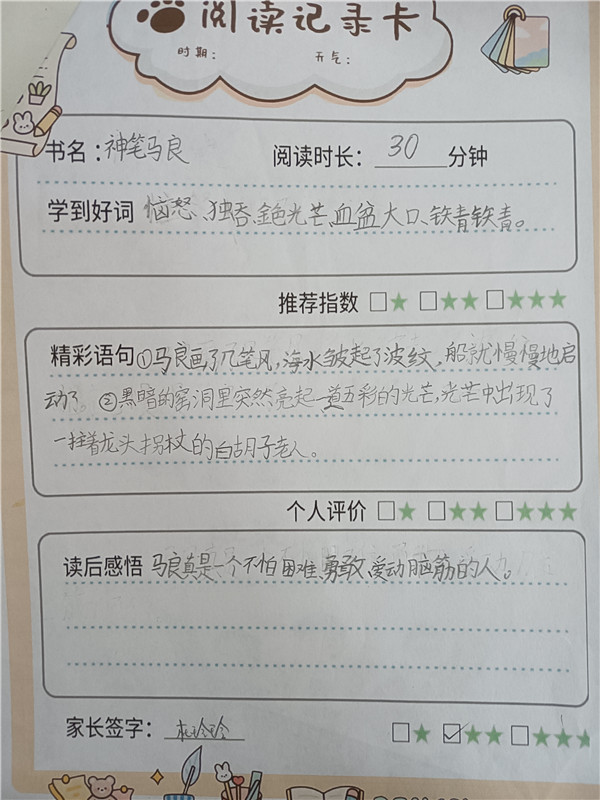 阅读记录卡
时期： 天气：
书名：神笔马良 阅读时长：30分钟
学到好词 恼怒、独吞、金色光芒、血盆大口、铁青铁青。
推荐指数 □★ □★★ □★★★
精彩语句①马良画了几笔风，海水皱起了波纹，船就慢慢地启
动了。②黑暗的窑洞里突然亮起一道五彩的光芒，光芒中出现了
一拄着龙头拐杖的白胡子老人。
个人评价 □★ □★★ □★★★
读后感悟 马良真是一个不怕困难、勇敢、爱动脑筋的人。
家长签字： 玲玲 □★ ☑★★ □★★★